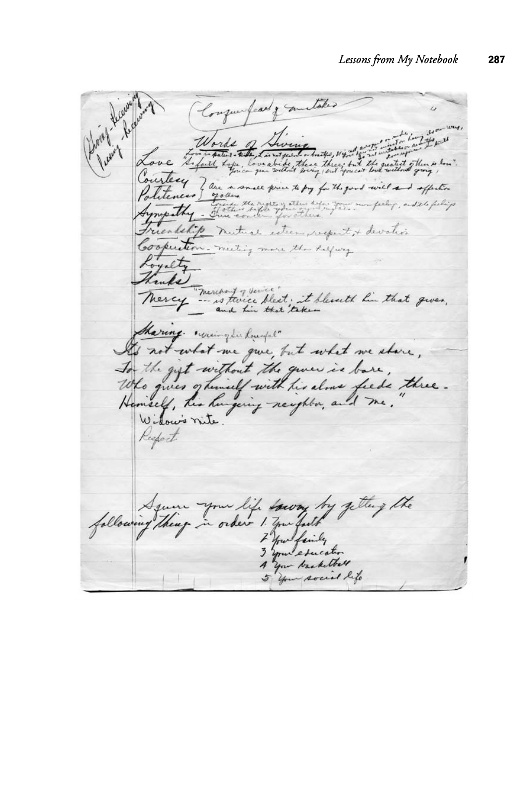 Lessons from My Notebook 287
Giving-Receiving
Conquer fear of mistakes
Words of Giving
Love
So faith, hope, love abide, these three; but the greatest of them is love".
You can give without loving, but you can't love without giving.
Courtesy
Politeness
Are a small price to pay for the good will and affection
of others
Sympathy - Give concern for others
Friendship - Mutual esteem, respect & devotion
Cooperation - meeting more than halfway
Loyalty
Thanks
"Merchant of Venice"
Mercy -- is twice blest; it blesseth him that gives,
and him that takes
Sharing
Its not what we give, but what we share,
For the gift without the giver is bare,
Who gives of himself with his alms feeds three -
Himself, his hungering neighbor, and me."
Widow's mite.
Respect
Square your life away by getting the
following things in order 1 Your faith
2 Your family
3 Your education
4 Your basketball
5 Your social life